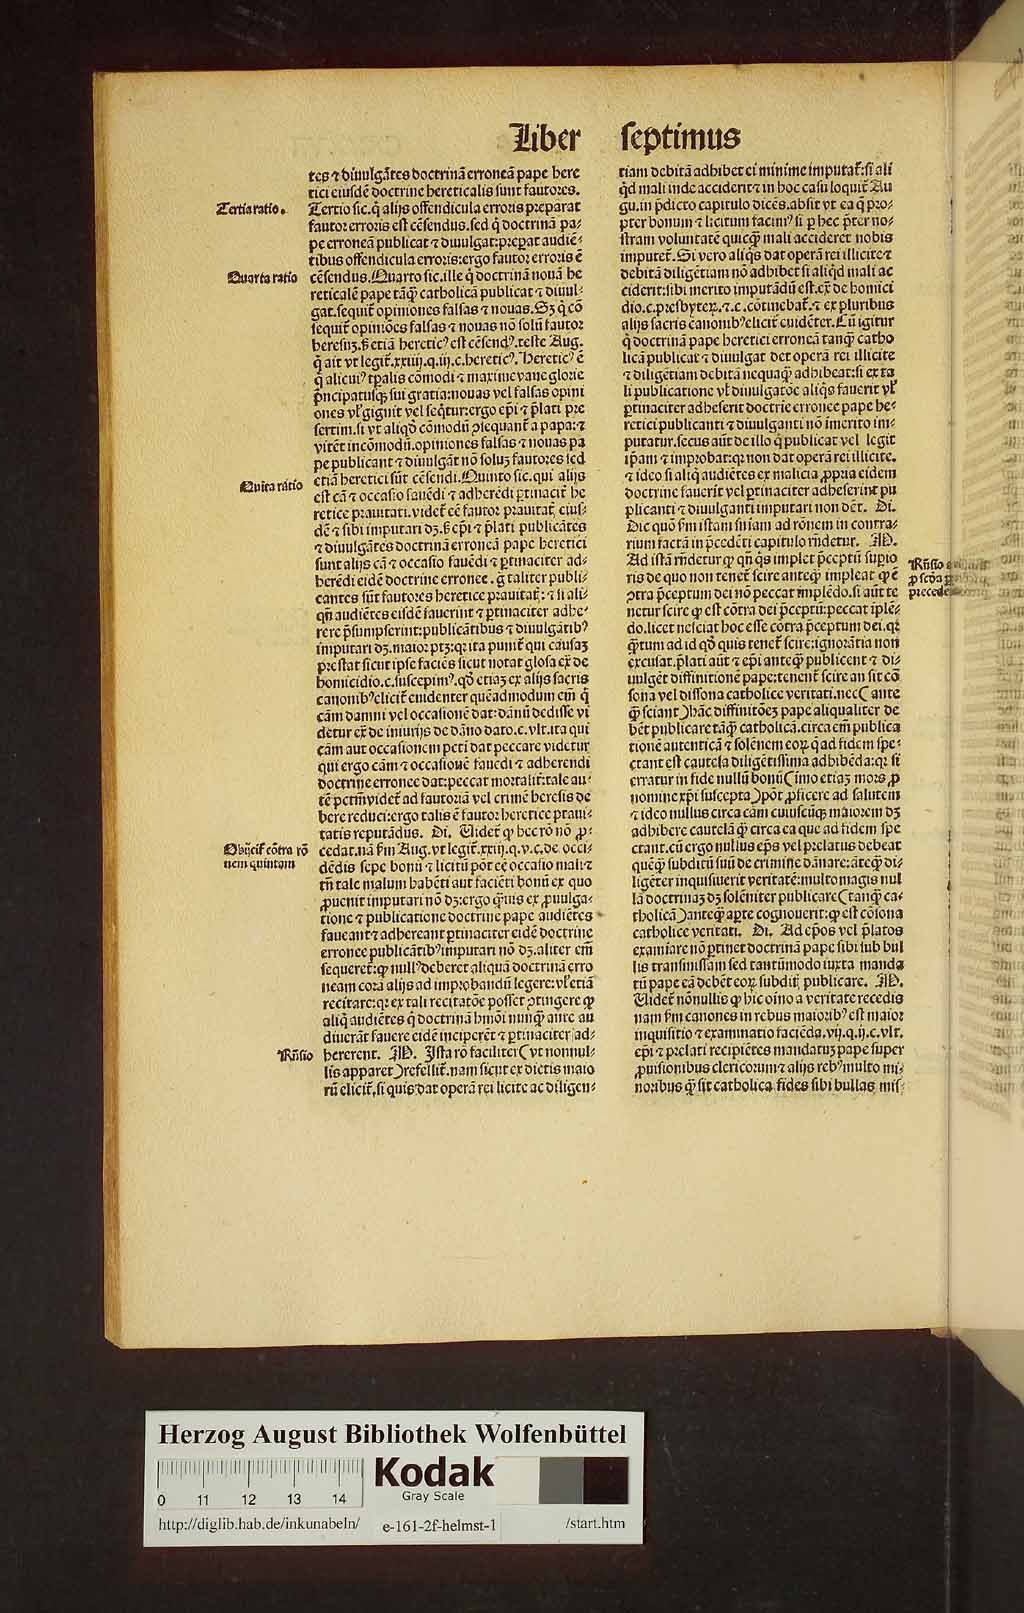 Liber septimus
tes ⁊ diuulgātes doctrinā erroneā pape here
tici eiusdē doctrine hereticalis sunt fautores.
Tertia ratio.
Tertio sic. q̄ alijs offendicula erroris preparat
fautor erroris est cēsendus. sed q̄ doctrinā pa-
pe erroneā publicat ⁊ diuulgat: preparat audiē-
tibus offendicula erroris: ergo fautor erroris ē
Quarta ratio
cēsendus. Quarto sic. ille q̄ doctrinā nouā he
reticalē pape tāq̄ catholicā publicat ⁊ diuul-
gat. sequit̄ opiniones falsas ⁊ nouas. Sꝫ q̄ cō
sequit̄ opiniōes falsas ⁊ nouas nō solū fautor
heresiuꝫ. sꝫ etiā heretic⁹ est cēsend⁹. teste Aug.
q̄ ait vt legit̄. xxiiij. q. iij. c. heretic⁹. Heretic⁹ ē
q̄ alicui⁹ tꝑalis cōmodi ⁊ maxime vane glorie
p̄ncipatusqꝫ sui gratia: nouas vel falsas opini
ones vl̓ gignit vel seq̄tur: ergo ep̄i ⁊ p̄lati pre
sertim. si vt aliqđ cōmodū ꝯsequant̄ a papa: ⁊
vitēt incōmodū. opiniones falsas ⁊ nouas pa
pe publicant ⁊ diuulgāt nō soluꝫ fautores sed
Quīta ratio
etiā heretici sūt cēsendi. Quinto sic. qui alijs
est cā ⁊ occasio fauēdi ⁊ adherēdi ꝑtinacit̄ he
retice prauitati. videt̄ eē fautor prauitat̄ eius-
dē ⁊ sibi imputari dꝫ. sꝫ ep̄i ⁊ p̄lati publicātes
⁊ diuulgātes doctrinā erroneā pape heretici
sunt alijs cā ⁊ occasio fauēdi ⁊ ꝑtinaciter ad-
herēdi eidē doctrine erronee. g̊ taliter publi-
cantes sūt fautores heretice prauitat̄: ⁊ si ali-
qn̄ audiētes eisdē fauerint ⁊ ꝑtinaciter adhe-
rere p̄sumpserint: publicātibus ⁊ diuulgātib⁹
imputari dꝫ. maior ptꝫ: qꝛ ita punit̄ qui causaꝫ
prestat sicut ipse faciēs sicut notat glosa ex̄ de
homicidio. c. suscepim⁹. qđ etiaꝫ ex alijs sacris
canonib⁹ elicit̄ euidenter quēadmodum em̄ q̄
cām damni vel occasionē dat: dānū dedisse vi
detur ex̄ de iniurijs ⁊ dāno dato. c. vlt. ita qui
cām aut occasionem pctī dat peccare videtur
qui ergo cām ⁊ occasionē fauēdi ⁊ adherendi
doctrine erronee dat: peccat mortalit̄: tale au-
tē pctm̄ videt̄ ad fautoriā vel crimē heresis de
bere reduci: ergo talis ē fautor heretice praui-
tatis reputādus. Di. Uidet̄ ꝙ hec rō nō ꝓ-
Obijcit̄ cōtra rō
nem quintam
cedat. nā ẜm Aug. vt legit̄. xxiij. q. v. c. de occi-
dēdis sepe bonū ⁊ licitū pōt eē occasio mali: ⁊
tn̄ tale malum habēti aut faciēti bonū ex quo
ꝓuenit imputari nō dꝫ: ergo q̄uis ex ꝓmulga-
tione ⁊ publicatione doctrine pape audiētes
faueant ⁊ adhereant ꝑtinaciter eidē doctrine
erronee publicātib⁹ imputari nō dꝫ. aliter em̄
sequeret̄: ꝙ null⁹ deberet aliquā doctrinā erro
neam corā alijs ad improbandū legere: vl̓ etiā
recitare: qꝛ ex tali recitatōe posset ꝯtingere ꝙ
aliq̄ audiētes q̄ doctrinā hmōi nunq̄ ante au
diuerāt fauere eidē inciperēt ⁊ ꝑtinaciter ad-
Rn̄sio
hererent. M. Ista rō faciliter (vt nonnul-
lis apparet) refellit̄. nam sicut ex dictis maio
rū elicit̄. si quis dat operā rei licite ac diligen-
tiam debitā adhibet ei minime imputat̄: si ali
qđ mali inde acciderit ⁊ in hoc casu loquit̄ Au
gu. in p̄dicto capitulo dicēs. absit vt ea q̄ pro-
pter bonum ⁊ licitum facim⁹ si ꝑ hec p̄ter no-
stram voluntatē quicq̄ mali accideret nobis
imputet̄. Si vero aliq̄s dat operā rei illicite ⁊
debitā diligētiam nō adhibet si aliqđ mali ac
ciderit: sibi merito imputādū est. ex̄ de homici
dio. c. presbyteꝝ. ⁊ c. cōtinebat̄. ⁊ ex pluribus
alijs sacris canonib⁹ elicit̄ euidēter. Cū igitur
q̄ doctrinā pape heretici erroneā tanq̄ catho
licā publicat ⁊ diuulgat det operā rei illicite
⁊ diligētiam debitā nequaq̄ adhibeat: si ex ta
li publicatione vl̓ diuulgatōe aliq̄s fauerit vl̓
ꝑtinaciter adheserit doctrīe erronee pape he-
retici publicanti ⁊ diuulganti nō īmerito im-
putatur. secus aūt de illo q̄ publicat vel legit
ip̄am ⁊ improbat: qꝛ non dat operā rei illicite.
⁊ ideo si aliq̄ audiētes ex malicia ꝓpria eidem
doctrine fauerīt vel ꝑtinaciter adheserint pu
plicanti ⁊ diuulganti imputari non dēt. Di.
Dic quō ẜm istam sniam ad rōnem in contra-
rium factā in p̄cedēti capitulo rn̄detur. M.
Ad istā rn̄detur ꝙ qn̄ q̄s implet p̄ceptū superio
ris de quo non tenet̄ scire anteq̄ impleat ꝙ ē
ꝯtra p̄ceptum dei nō peccat implēdo. si aūt te
netur scire ꝙ est cōtra dei p̄ceptū: peccat īplē-
do. licet nesciat hoc esse cōtra p̄ceptum dei. qꝛ
q̄tum ad id qđ quis tenet̄ scire: ignorātia non
excusat. p̄lati aūt ⁊ ep̄i anteq̄ publicent ⁊ di-
uulgēt diffinitionē pape: tenent̄ scire an sit cō
sona vel dissona catholice veritati. nec (ante
q̄ sciant) hāc diffinitōeꝫ pape aliqualiter de
bēt publicare tāq̄ catholicā. circa em̄ publica
tionē autenticā ⁊ solēnem eoꝝ q̄ ad fidem spe-
ctant est cautela diligētissima adhibēda: qꝛ si
erratur in fide nullū bonū (imo etiaꝫ mors ꝓ
nomine xp̄i suscepta) pōt ꝓficere ad salutem
⁊ ideo nullus circa cām cuiuscūqꝫ maiorem dꝫ
adhibere cautelā q̄ circa ea que ad fidem spe
ctant. cū ergo nullus ep̄s vel prelatus debeat
quēq̄ subditū suū de crimine dānare: āteq̄ di-
ligēter inquisiuerit veritatē: multo magis nul
lā doctrinaꝫ dꝫ solēniter publicare (tanq̄ ca-
tholicā) anteq̄ aꝑte cognouerit: ꝙ est cōsona
catholice veritati. Di. Ad ep̄os vel p̄latos
examīare nō ꝑtinet doctrinā pape sibi sub bul
lis transmissam sed tantūmodo iuxta manda
tū pape eā debēt eoꝝ subdit̄ publicare. M.
Uidet̄ nōnullis ꝙ hic oīno a veritate recedis
nam ẜm canones in rebus maiorib⁹ est maior
inquisitio ⁊ examinatio faciēda. vij. q. ij. c. vlt.
ep̄i ⁊ prelati recipiētes mandatuꝫ pape super
ꝓuisionibus clericorum ⁊ alijs reb⁹ multo mi-
noribus q̄ sit catholica fides sibi bullas mis-
Rn̄sio
precede
Herzog August Bibliothek Wolfenbüttel
0 11 12 13 14
Kodak
Gray Scale
http://diglib.hab.de/inkunabeln/ e-161-2f-helmst-1 /start.htm